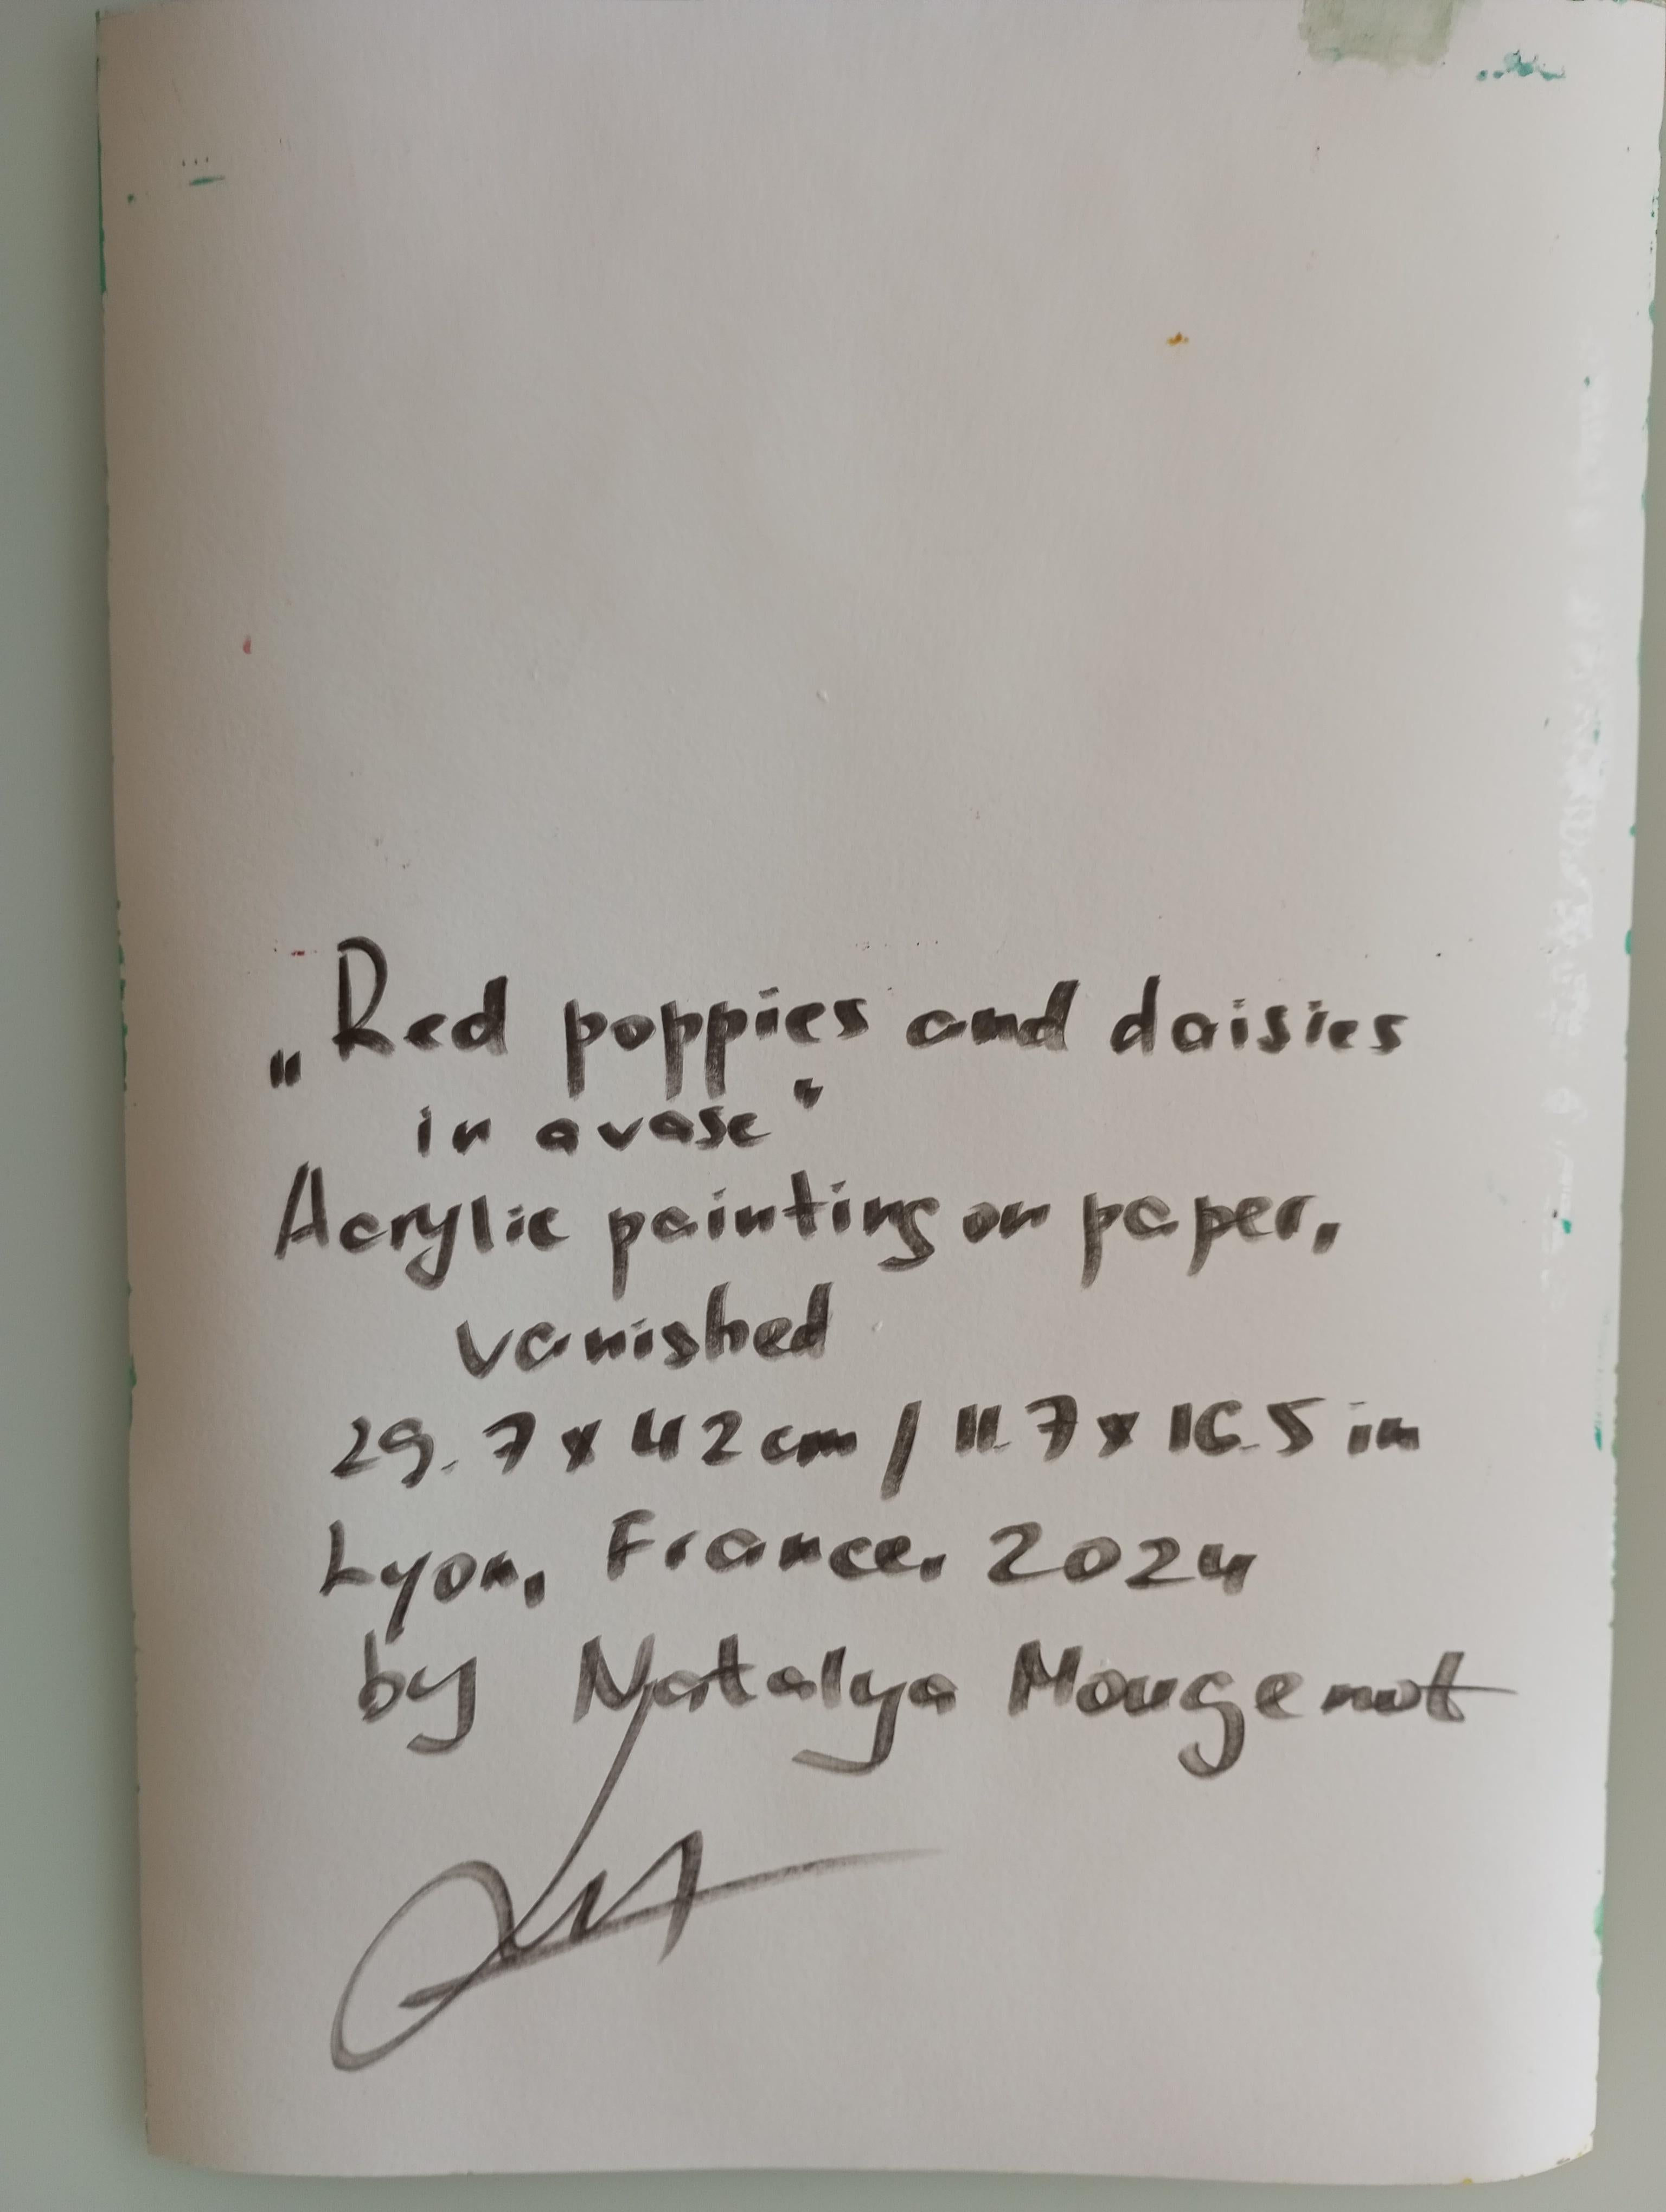 „Red poppies and daisies
in a vase"
Acrylic painting on paper,
vanished
29.7 x 42 cm / 11.7 x 16.5 in
Lyon, France, 2024
by Natalya Mougenot